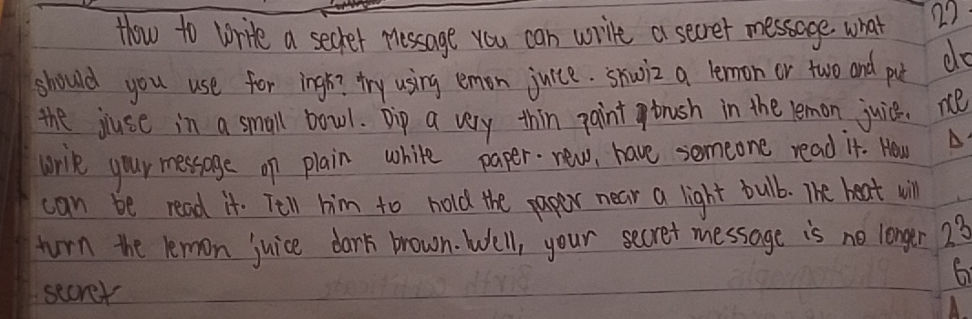 How to write a secret Message you can write a secret message. what
should you use for ingk? try using lemon juice. skwiz a lemon or two and put
the jiuse in a small bowl. Dip a very thin paint brush in the lemon juice.
write your message on plain white paper. new, have someone read it. How
can be read it. Tell him to hold the paper near a light bulb. The heat will
turn the lemon juice dark brown. Well, your secret message is no longer
secret
22
do
nce
A
23
A.